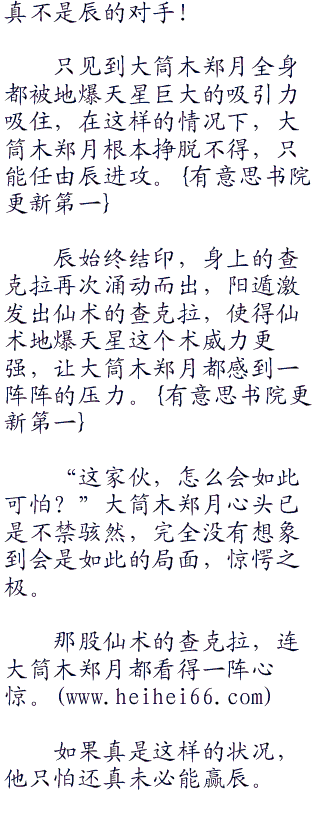 真不是辰的对手！
只见到大筒木郑月全身
都被地爆天星巨大的吸引力
吸住，在这样的情况下，大
筒木郑月根本挣脱不得，只
能任由辰进攻。{有意思书院
更新第一}
辰始终结印，身上的查
克拉再次涌动而出，阳遁激
发出仙术的查克拉，使得仙
术地爆天星这个术威力更
强，让大筒木郑月都感到一
阵阵的压力。{有意思书院更
新第一}
“这家伙，怎么会如此
可怕？”大筒木郑月心头已
是不禁骇然，完全没有想象
到会是如此的局面，惊愕之
极。
那股仙术的查克拉，连
大筒木郑月都看得一阵心
惊。(www.heihei66.com)
如果真是这样的状况，
他只怕还真未必能赢辰。